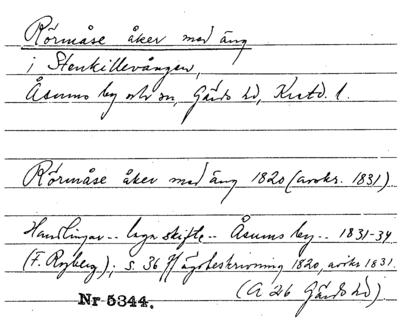 Rörmåse åker med äng
i Stenkillevången,
Åsums by och sn, Gärds hd, Krstd. l.
Rörmåse åker med äng 1820 (avskr. 1831)
Handlingar .. laga skifte .. Åsums by .. 1831-34
(F. Ryberg); s. 36 ägobeskrivning 1820, avskr 1831.
(A 26 Gärds hd)
Nr 5344.